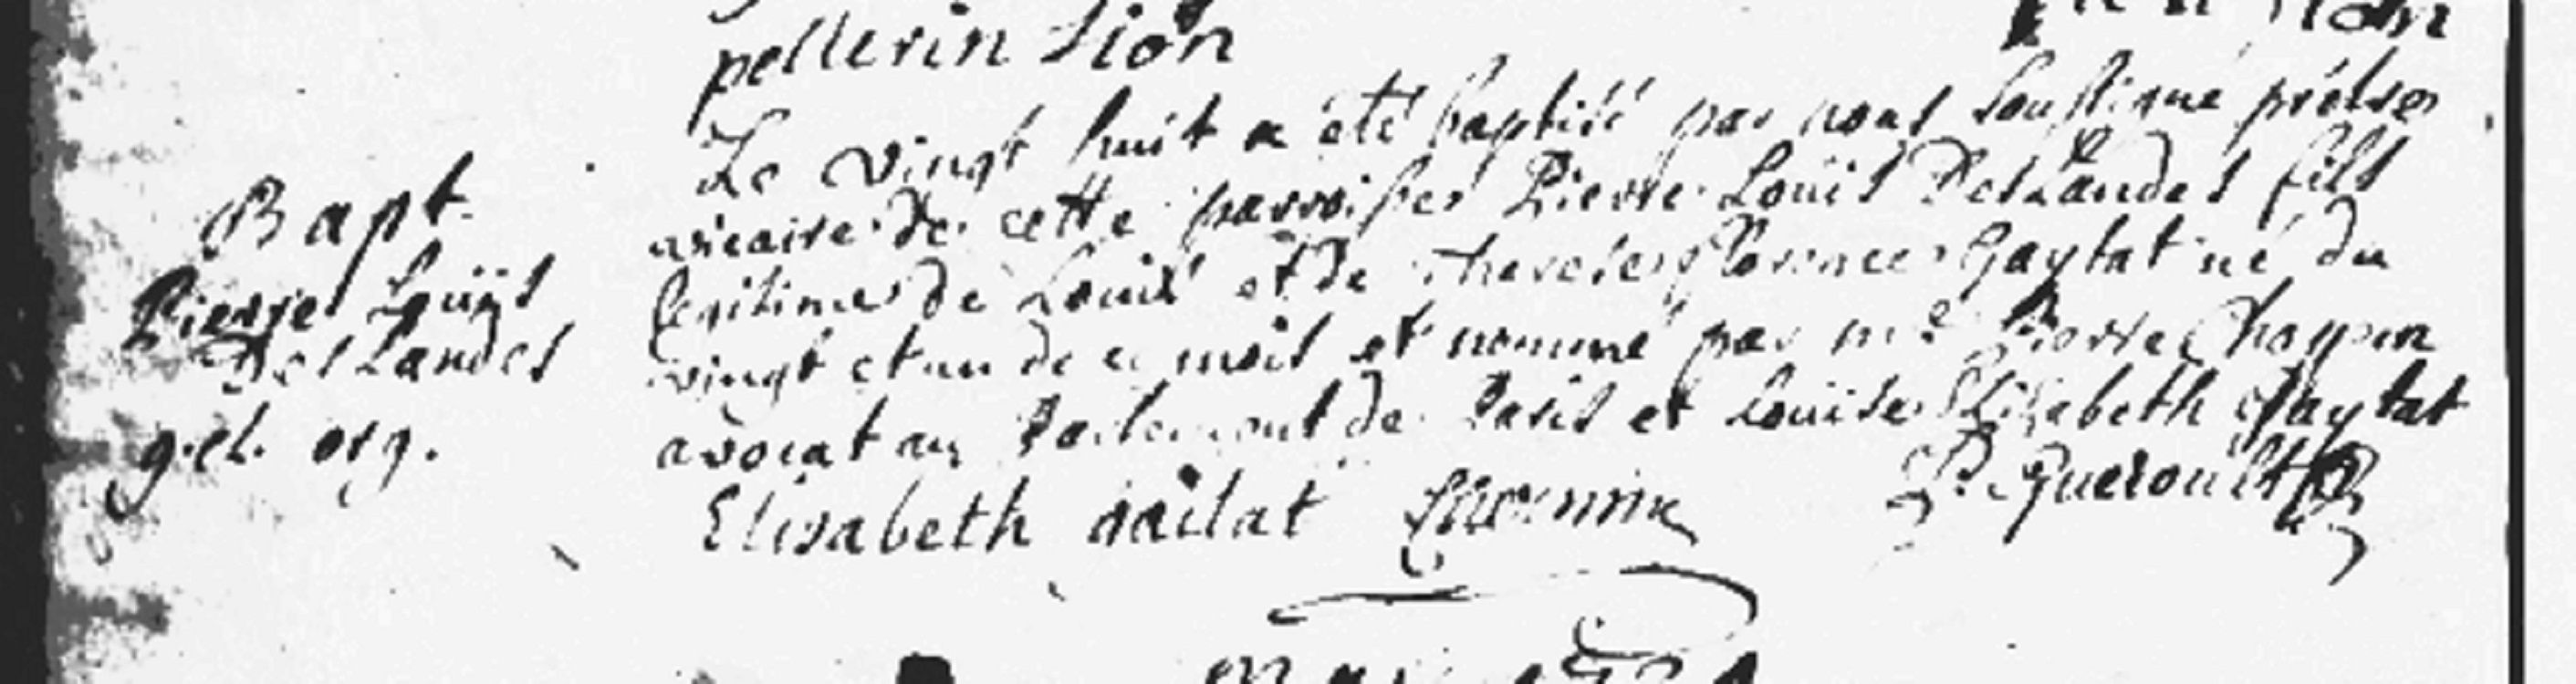 pellerin Sion
Le vingt huit a été baptisé par nous soussigné prêtre
Bapt.
vicaire de cette parroisse Pierre Louis DesLandes fils
Pierre Louis
legitime de Louis et de therese florence Gaytat né du
DesLandes
vingt et un de ce mois et nommé par me Pierre
g.el. org.
avocat au Parlement de Paris et Louise Elizabeth Gaytat
Elisabeth P. Gueroult